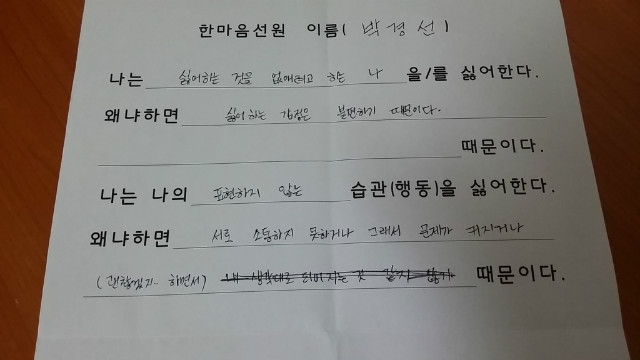 한마음선원 이름( 박경선 )
나는 싫어하는 것을 없애려고 하는 나 을/를 싫어한다.
왜냐하면 싫어하는 감정은 불편하기 때문이다.
때문이다.
나는 나의 표현하지 않는 습관(행동)을 싫어한다.
왜냐하면 서로 소통하지 못하거나 그래서 문제가 커지거나
(괜찮겠지- 하면서) 내 생각대로 되어지는 것 같지 않기 때문이다.